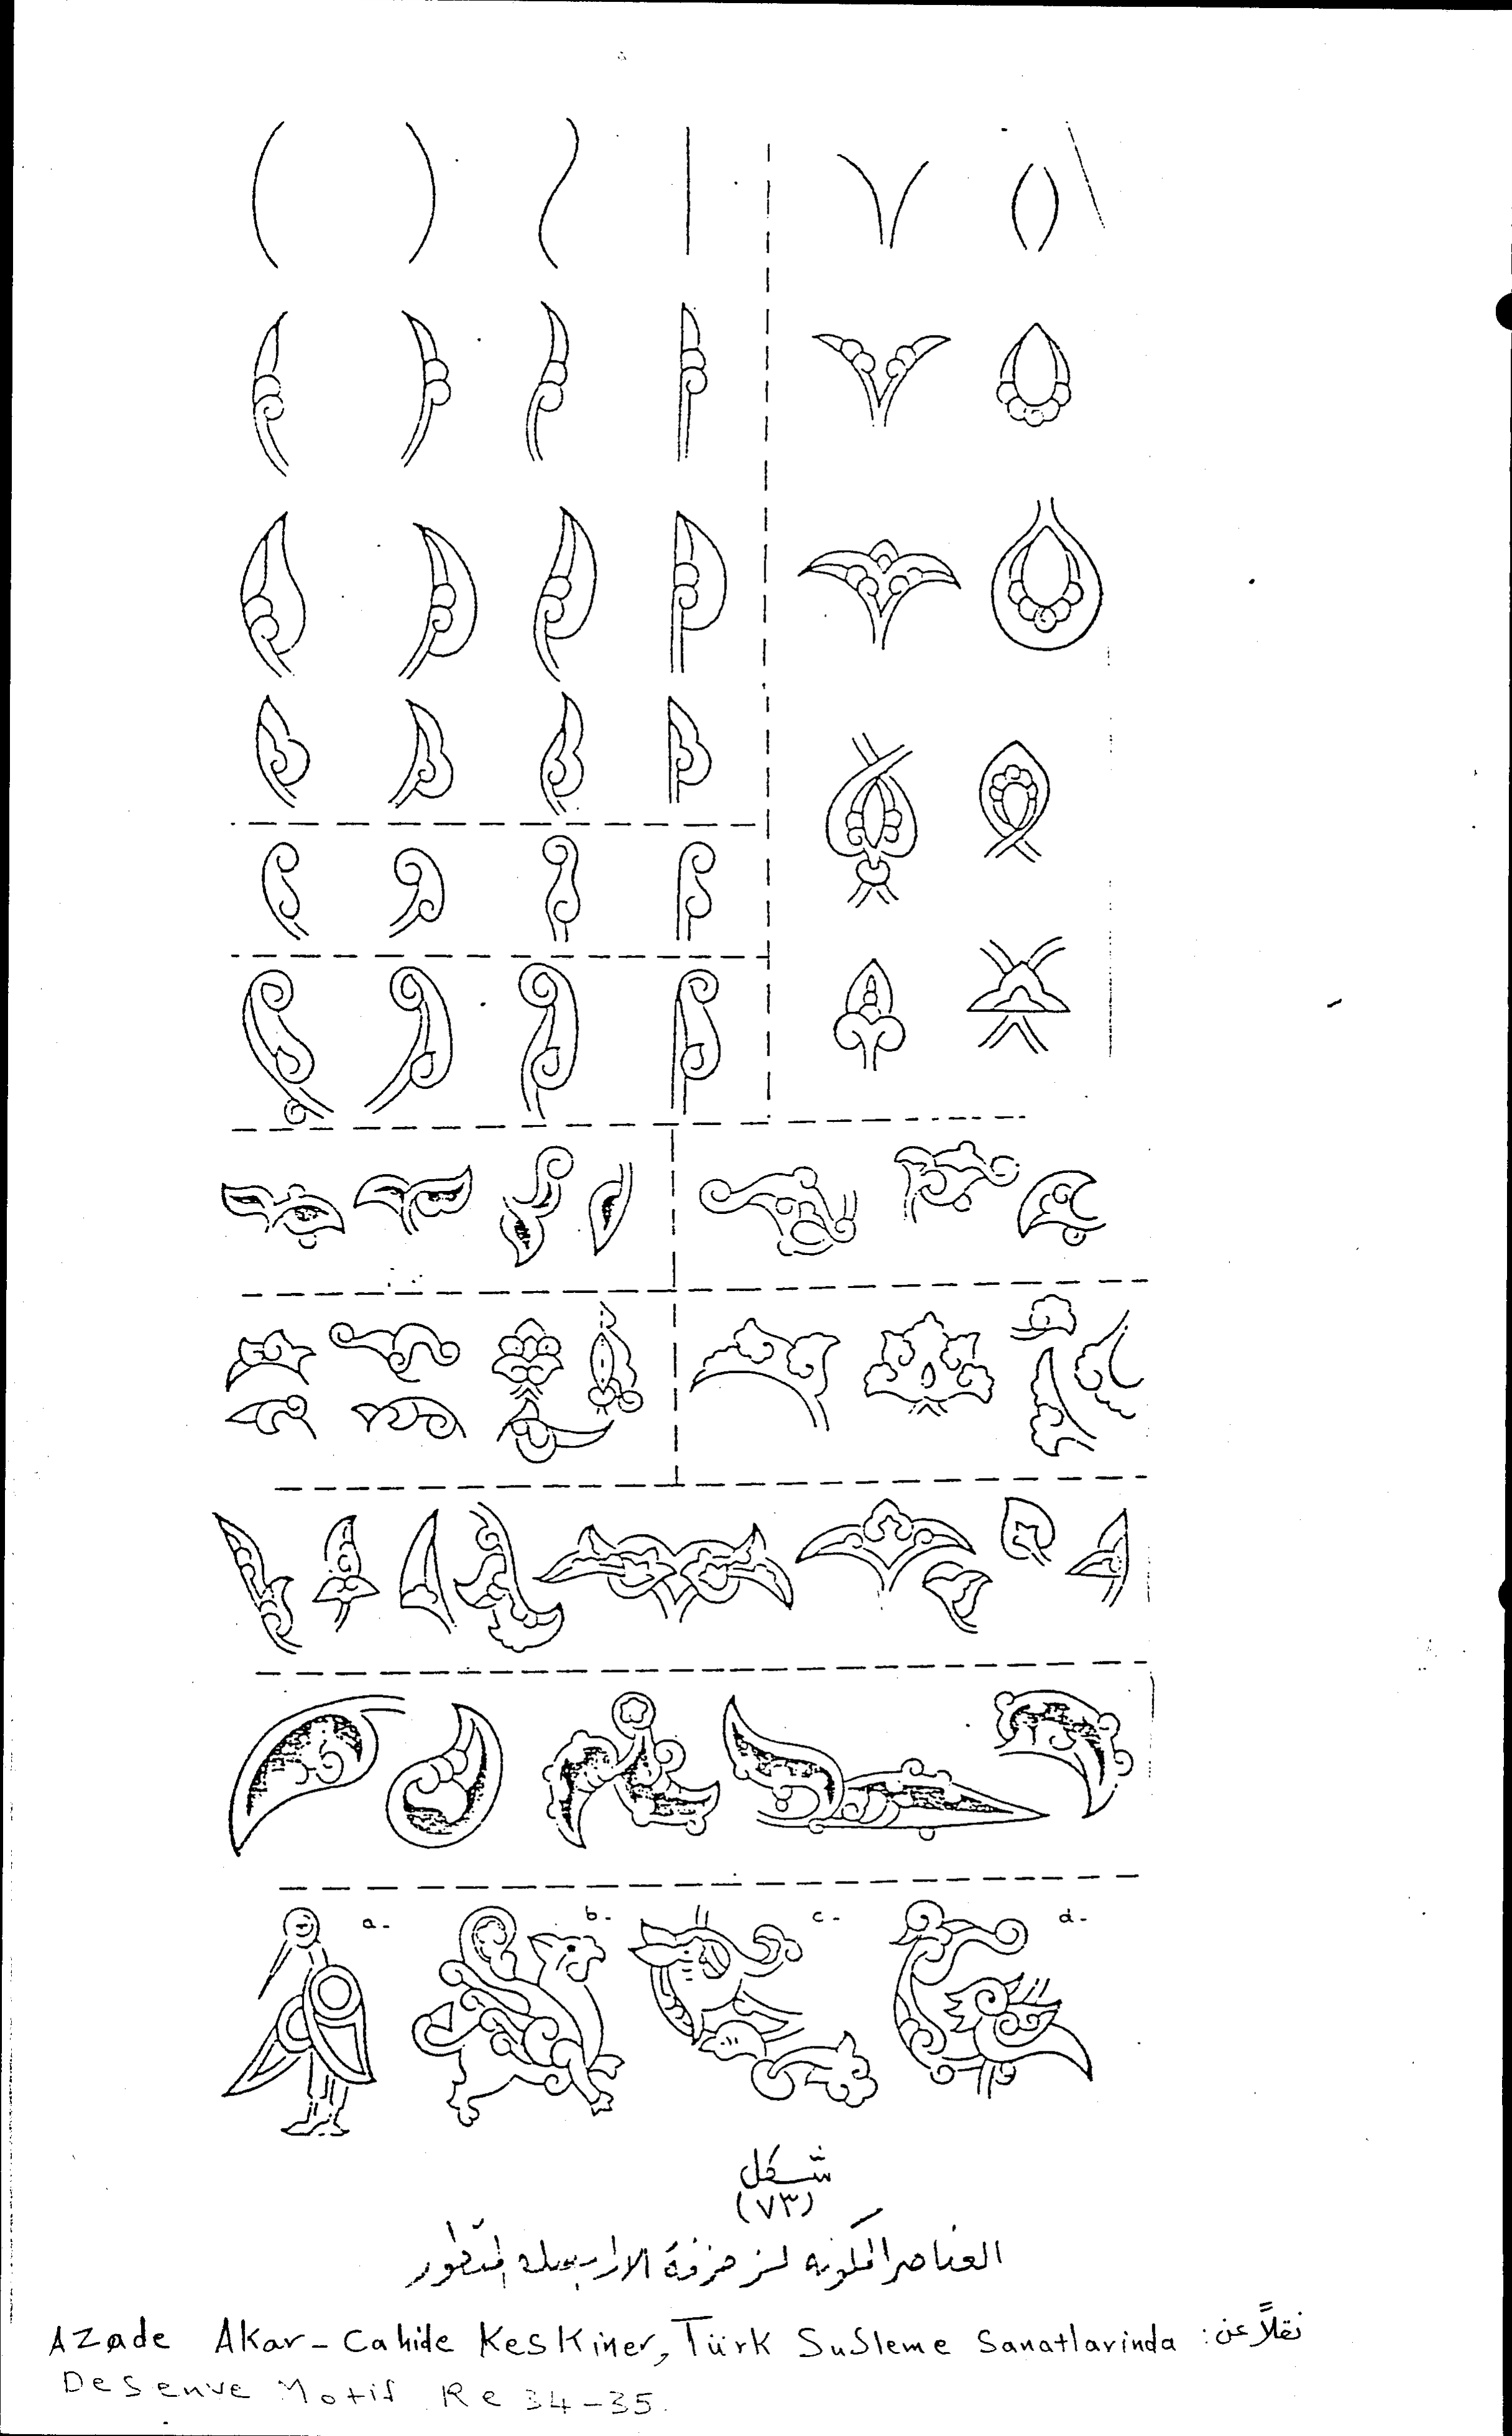 a-
b-
c-
d-
شكل
(٧٣)
العناصر المكونه لزخرفة الارابيسك المتطور
نقلاً عن: Azade Akar-Cahide Keskiner, Türk Susleme Sanatlarinda
Desenve Motif Re 34-35.